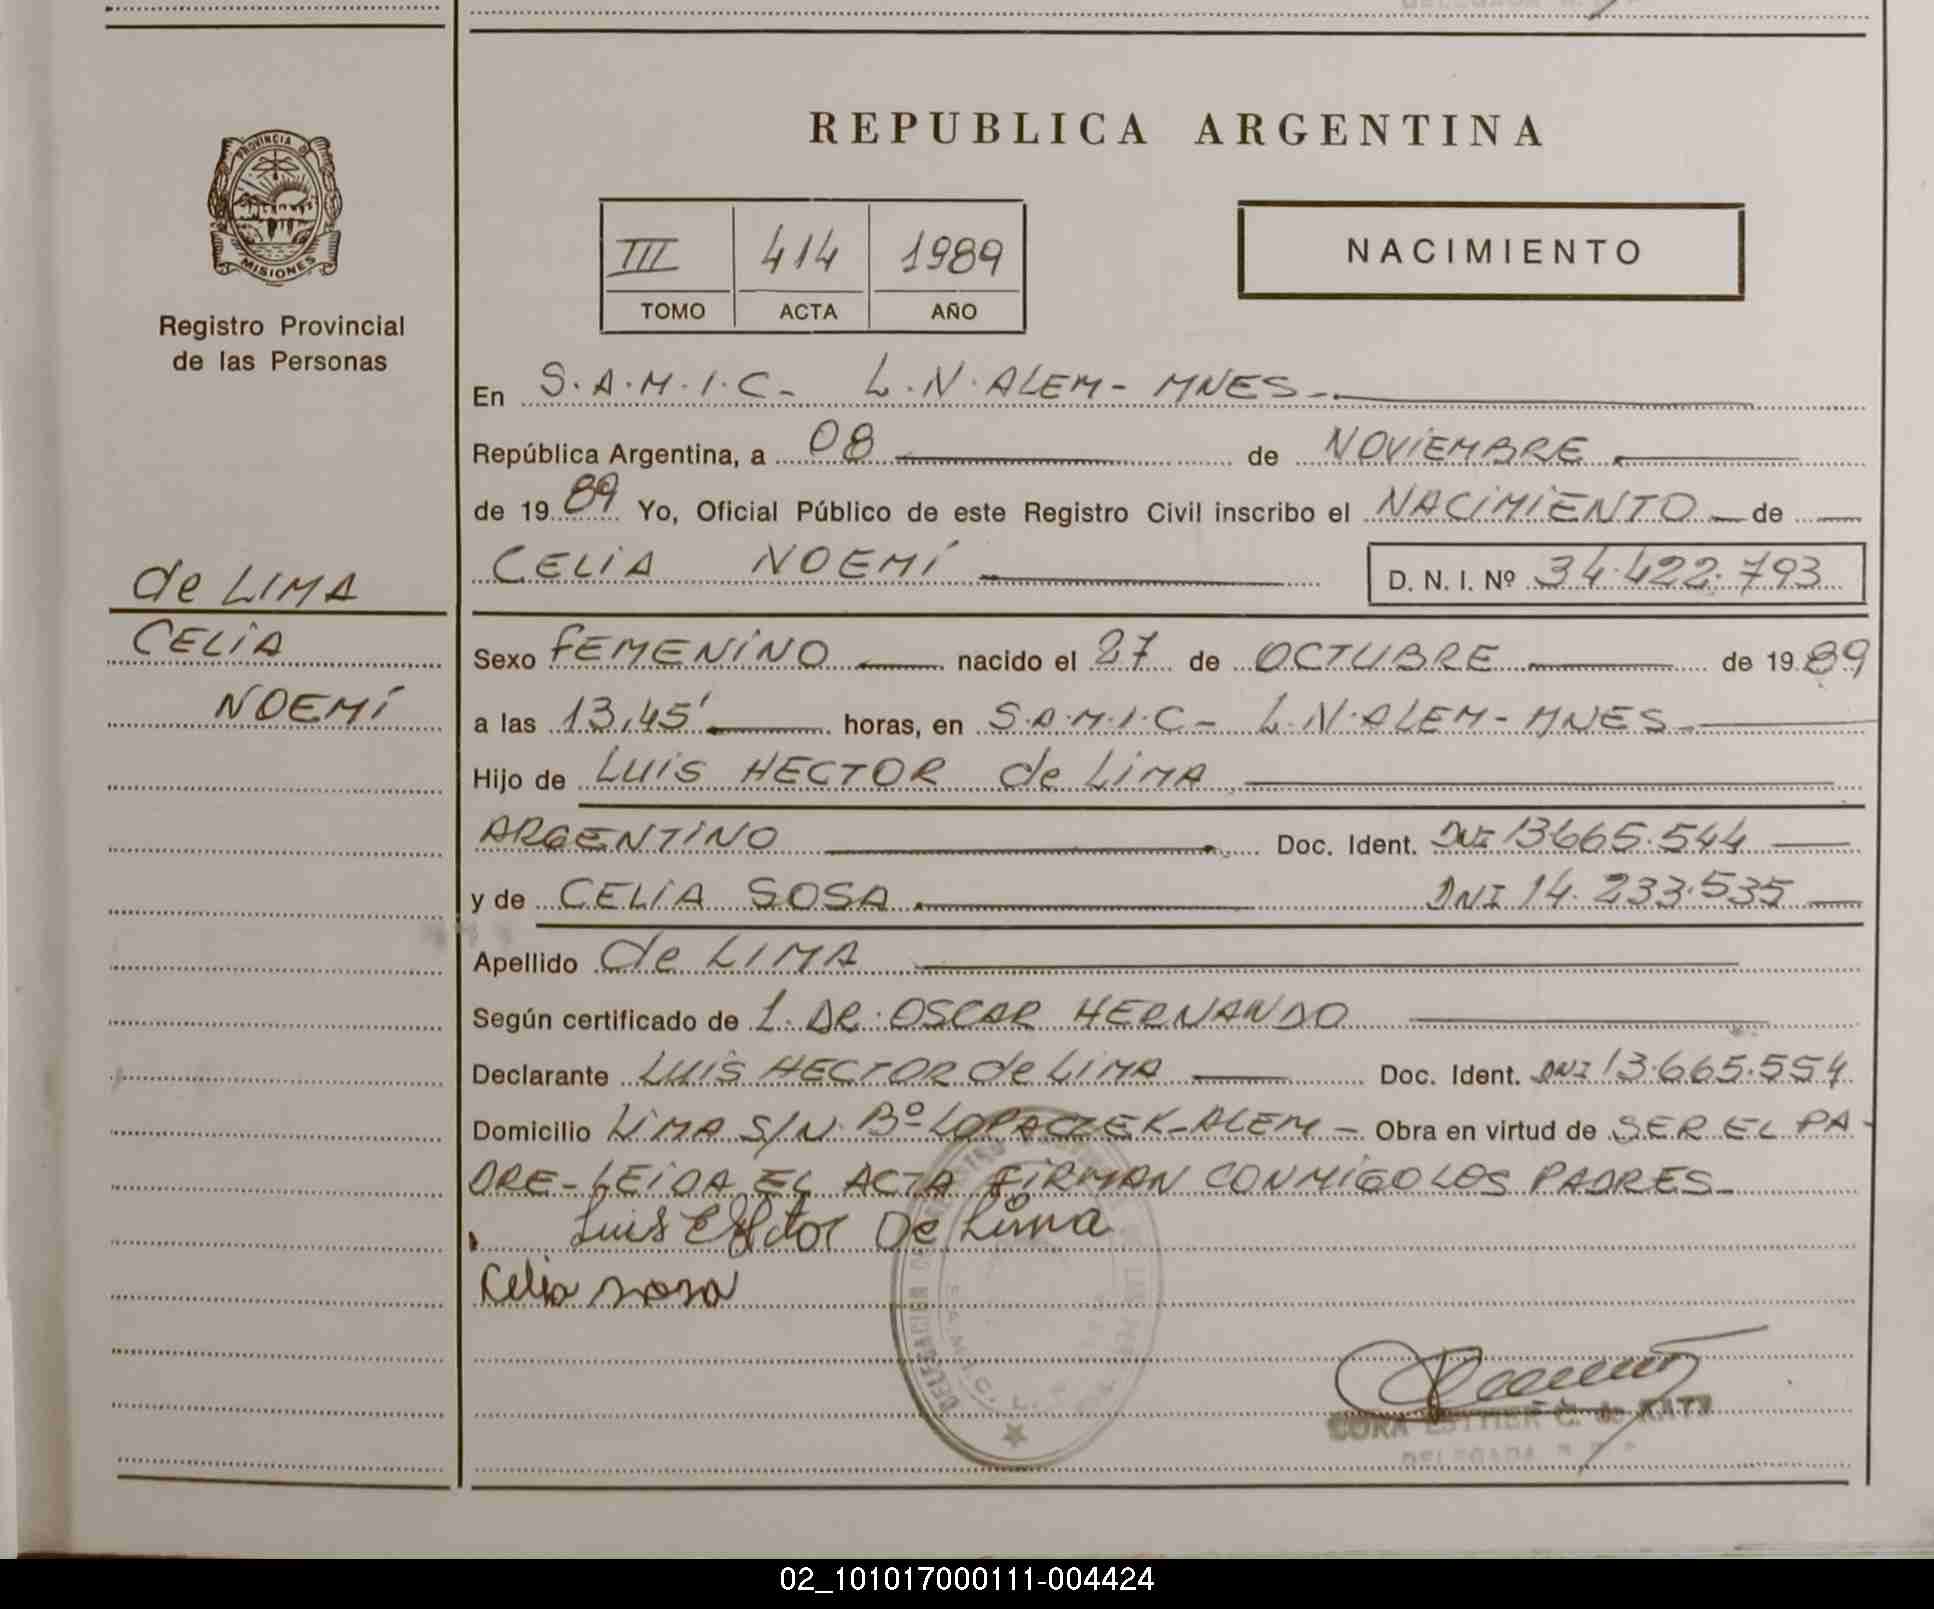 PROVINCIA DE
MISIONES
Registro Provincial
de las Personas
de LIMA
CELIA
NOEMÍ
REPUBLICA ARGENTINA
III 414 1989
TOMO ACTA AÑO
NACIMIENTO
En S.A.M.I.C- L.N.ALEM- MNES-
República Argentina, a 08 de NOVIEMBRE
de 1989 Yo, Oficial Público de este Registro Civil inscribo el NACIMIENTO de
CELIA NOEMÍ D. N. I. Nº 34.422.793
Sexo FEMENINO nacido el 27 de OCTUBRE de 1989
a las 13,45' horas, en S.A.M.I.C- L.N.ALEM- MNES-
Hijo de LUIS HECTOR de LIMA
ARGENTINO Doc. Ident. DNI 13665.544
y de CELIA SOSA DNI 14.233.535
Apellido de LIMA
Según certificado de 1. DR. OSCAR HERNANDO
Declarante LUIS HECTOR de LIMA Doc. Ident. DNI 13.665.554
Domicilio LIMA S/N Bº LOPACZEK-ALEM- Obra en virtud de SER EL PA-
DRE-LEIDA EL ACTA FIRMAN CONMIGO LOS PADRES-
Luis Ector De Lima
Celia sosa
CORA ESTHER C. de KATZ
DELEGADA
02_101017000111-004424